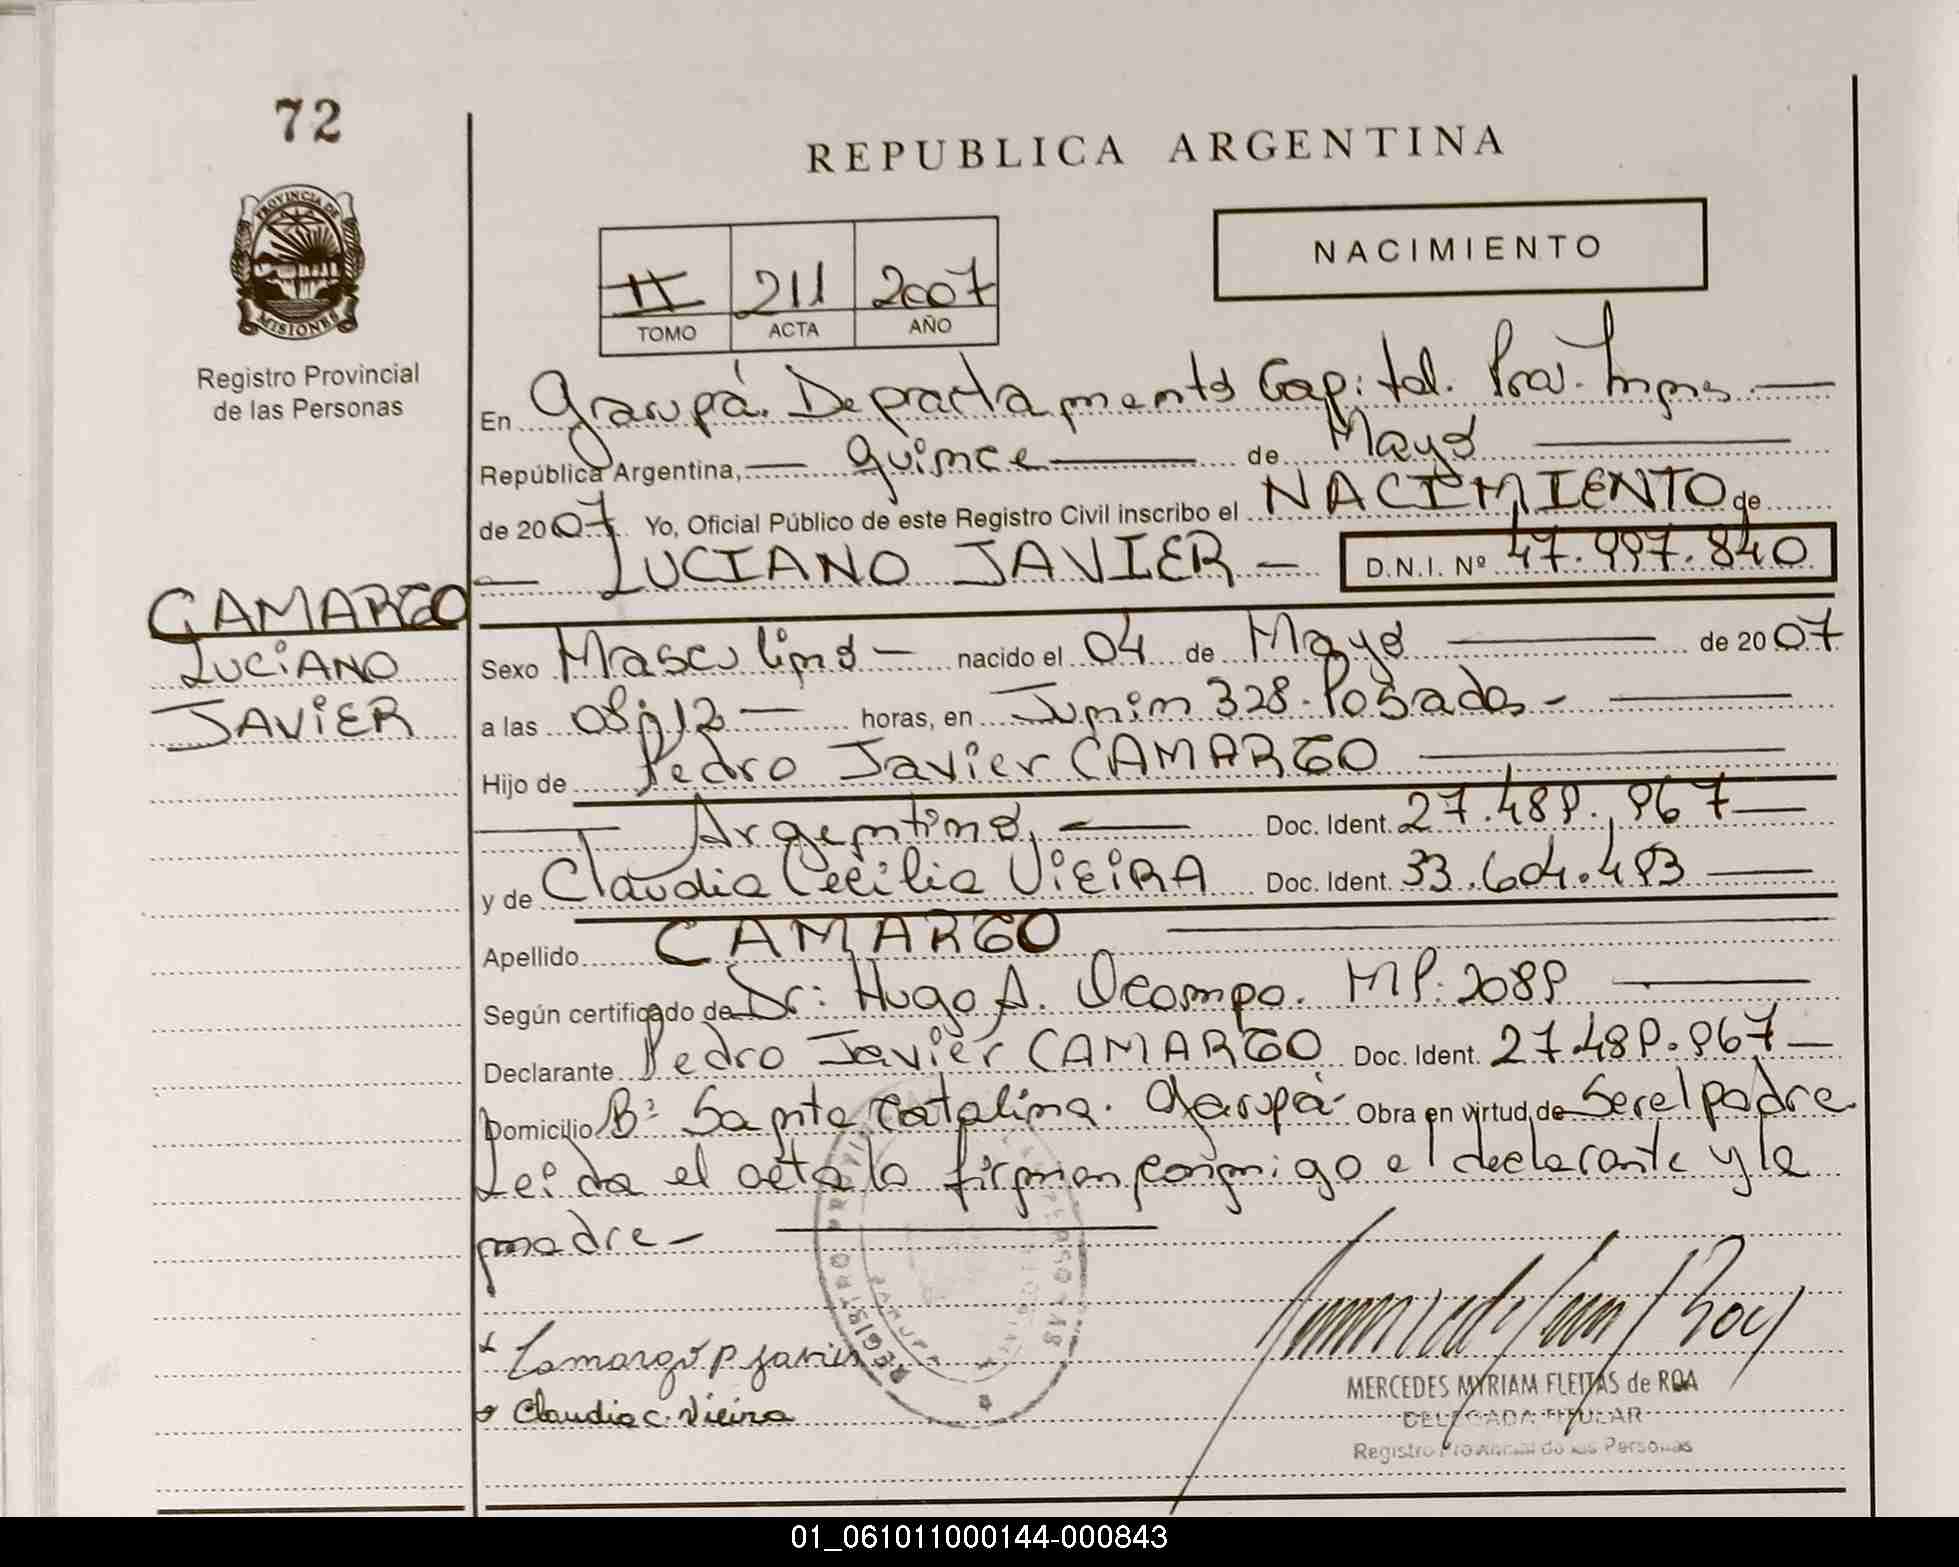 72
PROVINCIA DE
MISIONES
Registro Provincial
de las Personas
REPUBLICA ARGENTINA
II 211 2007
TOMO ACTA AÑO
NACIMIENTO
En Garupá. Departamento Capital. Prov. Mnes
República Argentina, quince de Mayo
de 2007 Yo, Oficial Público de este Registro Civil inscribo el NACIMIENTO de
LUCIANO JAVIER D.N.I. Nº 47.997.840
CAMARGO
LUCIANO
JAVIER
Sexo Masculino nacido el 04 de Mayo de 2007
a las 08:12 horas, en Junin 328. Posadas
Hijo de Pedro Javier CAMARGO
Argentino, Doc. Ident. 27.489.967
y de Claudia Cecilia VIEIRA Doc. Ident. 33.604.493
Apellido CAMARGO
Según certificado de Dr: Hugo A. Ocampo. MP. 2089
Declarante Pedro Javier CAMARGO Doc. Ident. 27.489.967
Domicilio Bº Santa Catalina. Garupá Obra en virtud de Ser el padre
Leida el acta la firman conmigo el declarante y la
madre
Camargo P. Javier
Claudia C. Vieira
MERCEDES MYRIAM FLEITAS de ROA
DELEGADA TITULAR
Registro Provincial de las Personas
01_061011000144-000843